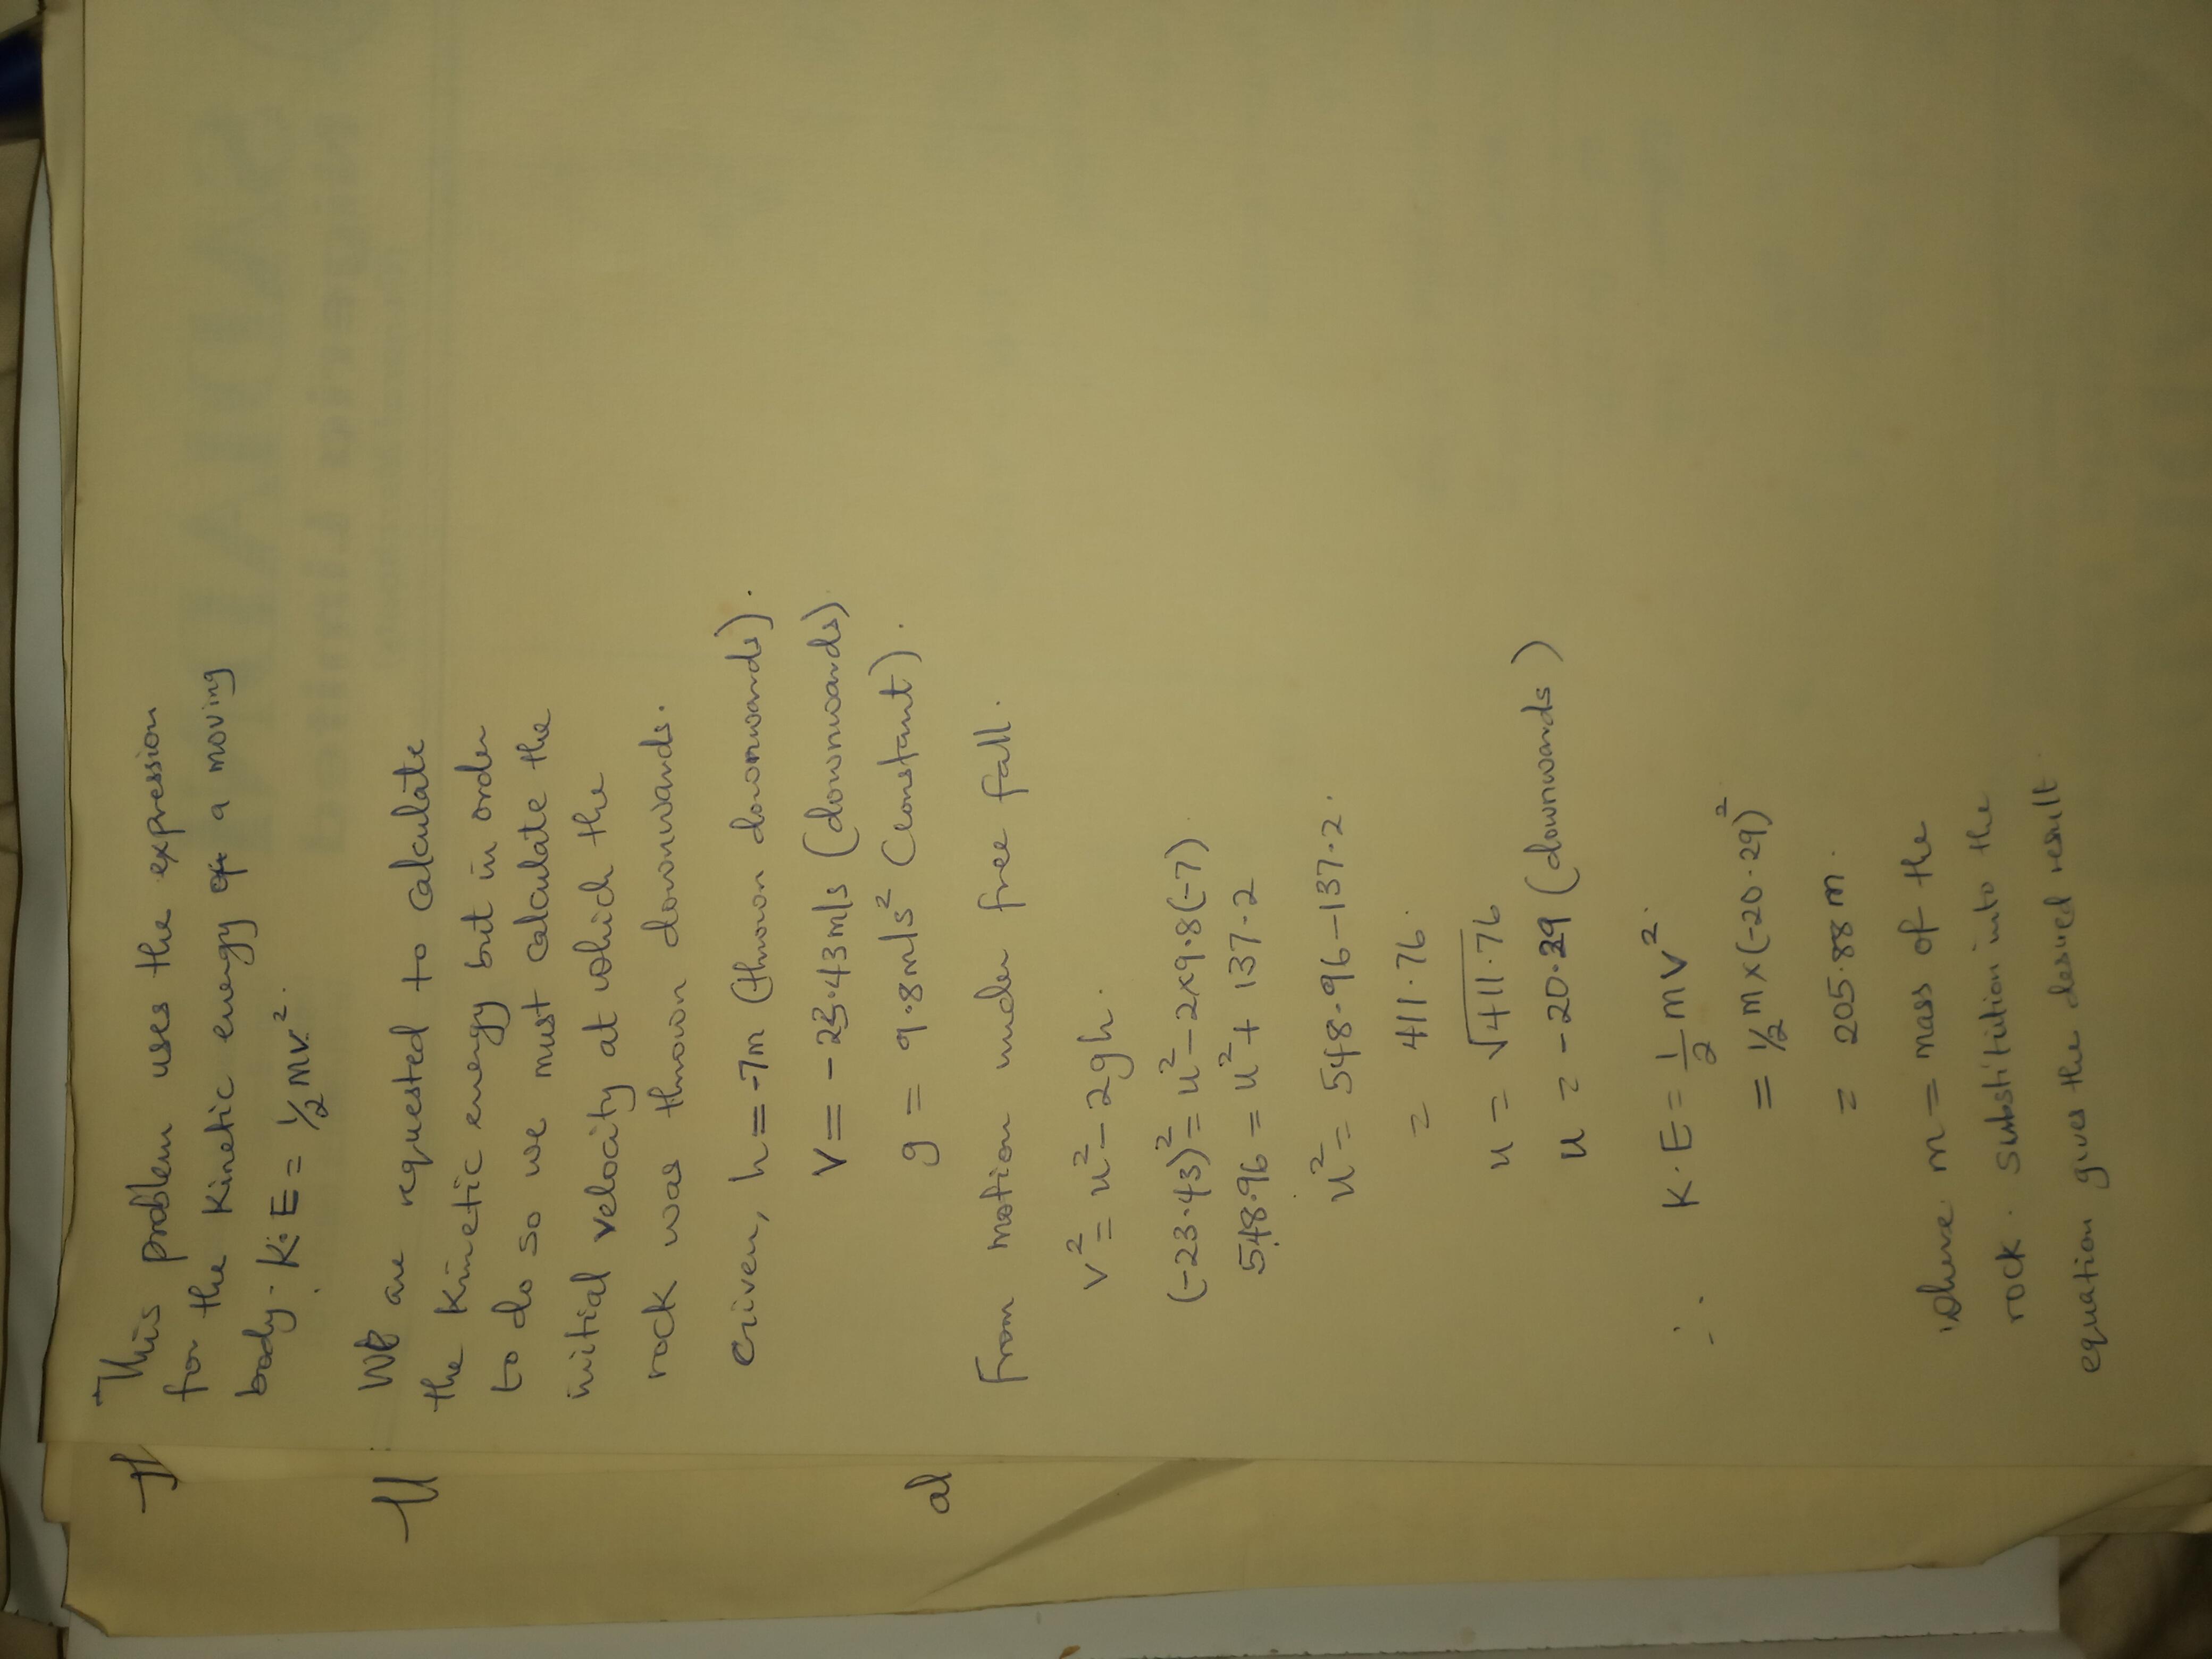 This problem uses the expression
for the kinetic energy of a moving
body. K.E = ½ mv².
We are requested to calculate
the kinetic energy but in order
to do so we must calculate the
initial velocity at which the
rock was thrown downwards.
Given, h = -7m (thrown downwards).
V = -23.43m/s (downwards)
a) g = 9.8m/s² (constant).
From motion under free fall.
v² = u² - 2gh.
(-23.43)² = u² - 2x9.8(-7)
548.96 = u² + 137.2
u² = 548.96 - 137.2.
= 411.76.
u = √411.76
u = -20.29 (downwards)
∴ K.E = 1/2 mv².
= ½ m x (-20.29)²
= 205.88 m.
where m = mass of the
rock. Substitution into the
equation gives the desired result.